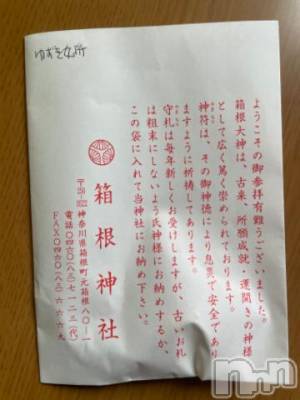 ゆずき女所
ようこその御参拝有難うございました。
箱根大神は、古来、所願成就・運開きの神様
として広く篤く崇められております。
神符は、その御神徳により息災で安全であり
ますように祈祷してあります。
守札は毎年新しくお受けしますが、古いお札
は粗末にしないよう氏神様にお納めするか、
この袋に入れて当神社にお納め下さい。
箱根神社
神奈川県箱根町元箱根八〇―一
電話〇四六〇(八三)七一二三(代)
FAX〇四六〇(八三)六六六九